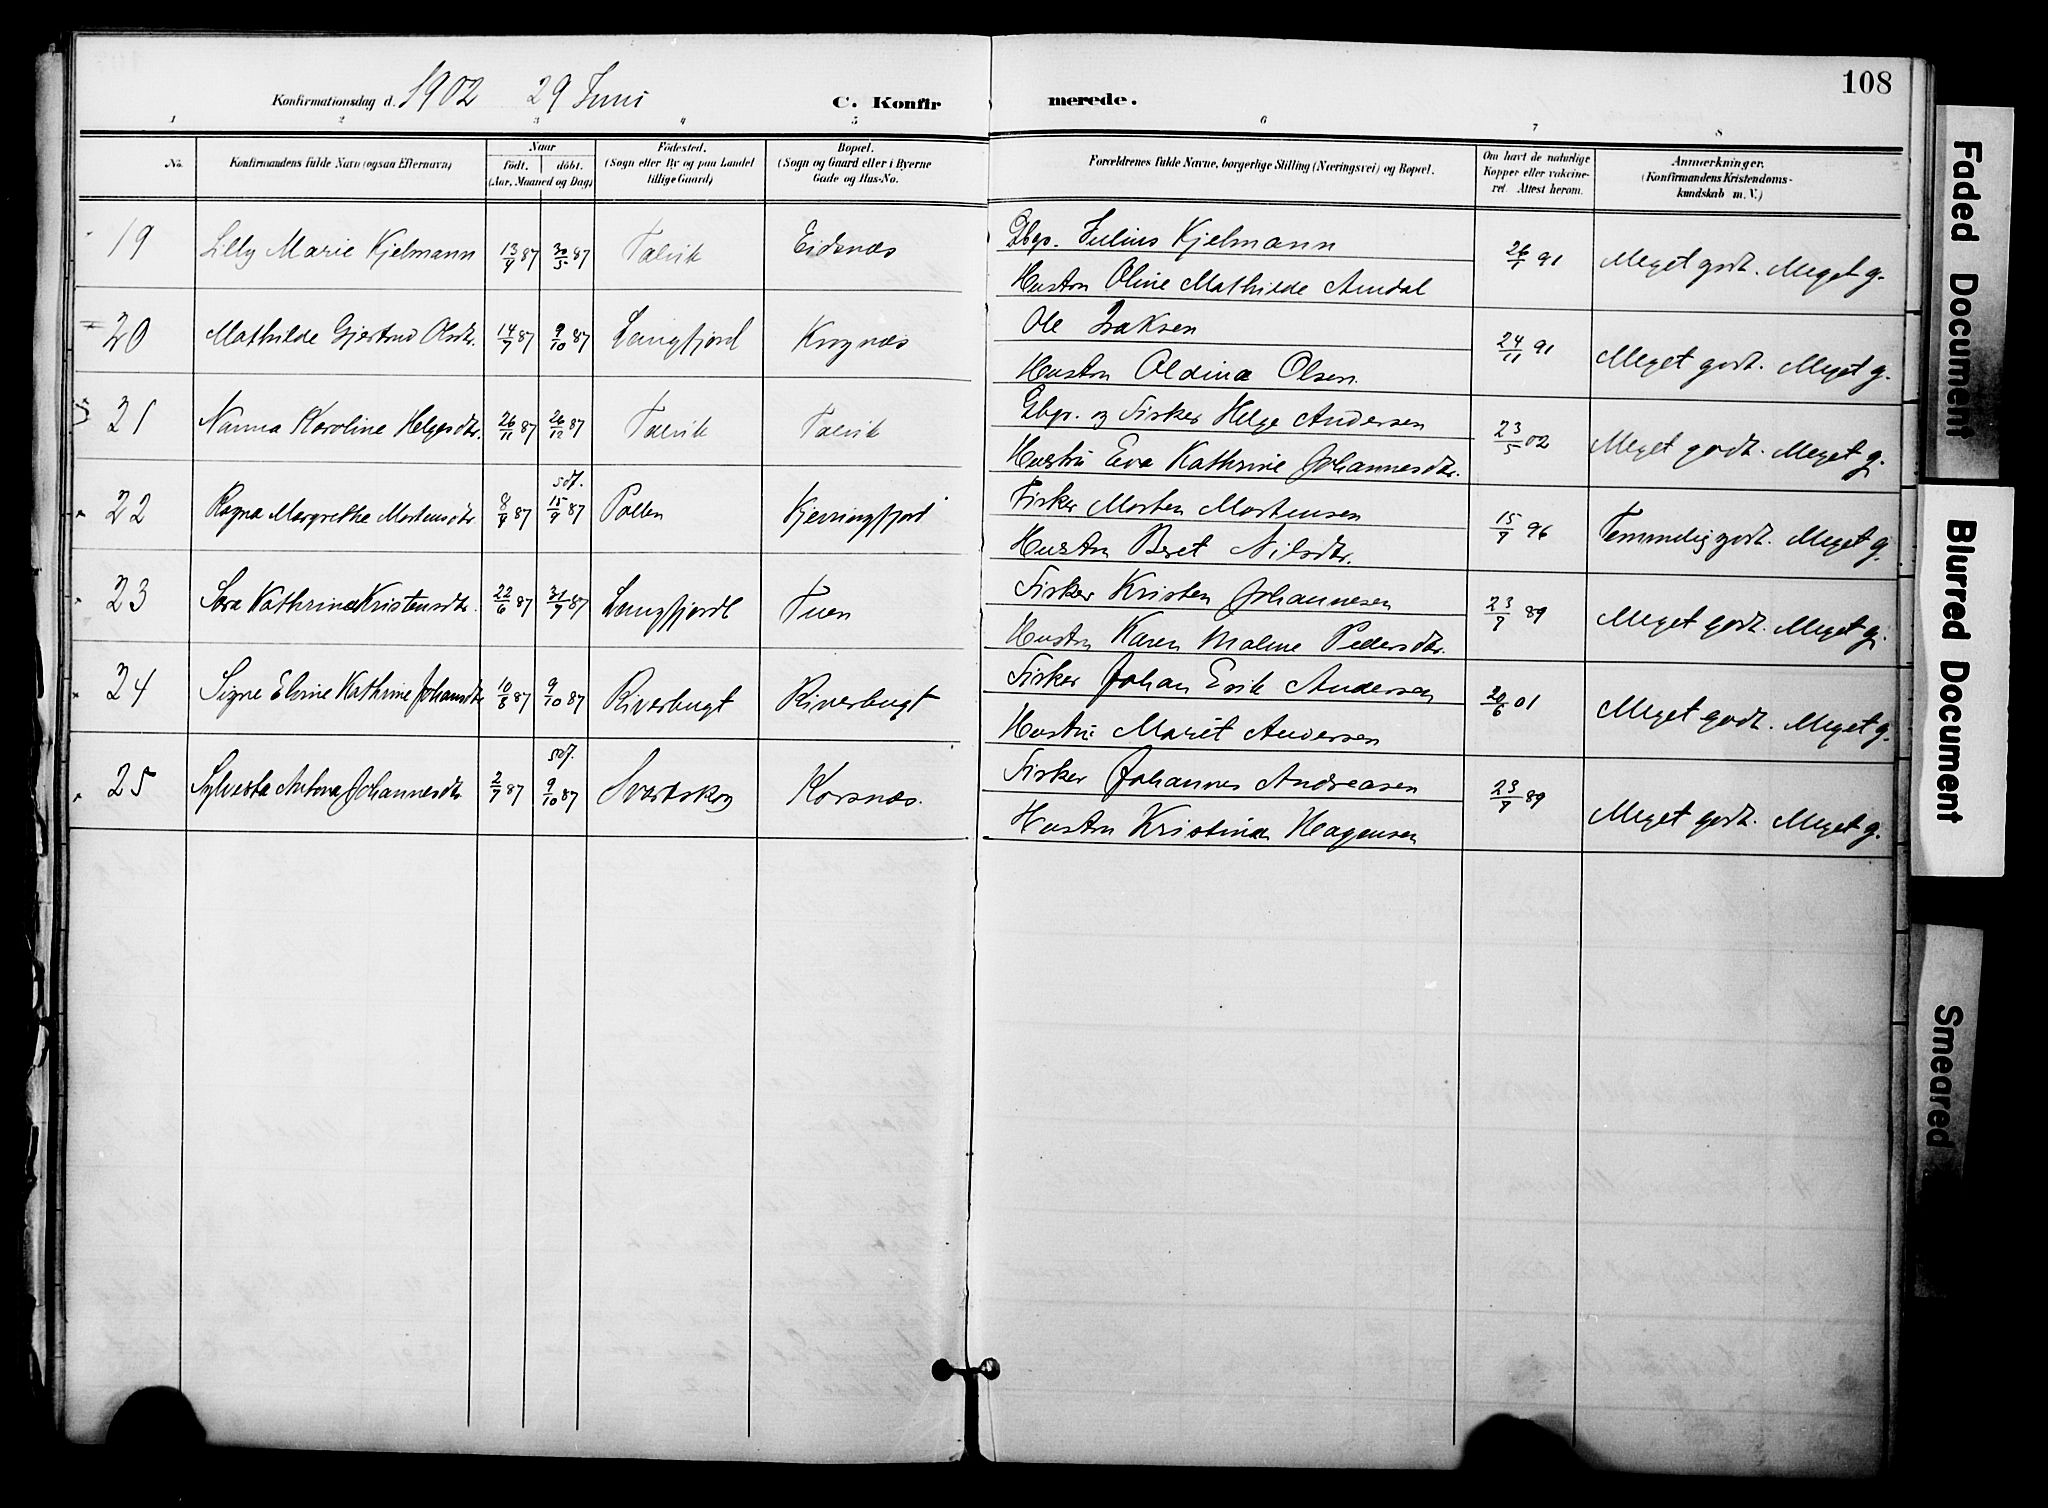 108
Konfirmationsdag d. 1902 29 Juni C. Konfirmerede.
1 2 3 4 5 6 7 8
No. Konfirmandens fulde Navn (ogsaa Efternavn) Naar født. døbt. (Aar, Maaned og Dag) Fødested. (Sogn eller By og paa Landet tillige Gaard) Bopæl. (Sogn og Gaard eller i Byerne Gade og Hus-No. Forældrenes fulde Navne, borgerlige Stilling (Næringsvei) og Bopæl. Om havt de naturlige Kopper eller vakcineret. Attest herom. Anmærkninger. (Konfirmandens Kristendomskundskab m. V.)
19 Lilly Marie Kjelmann 13/9 87 30/5 87 Talvik Eidsnæs Gbgr. Julius Kjelmann
Hustru Oline Mathilde Amdal 26/7 91 Meget godt. Meget g.
20 Mathilde Gjertrud Olsdtr. 14/7 87 9/10 87 Langfjord Krognæs Ole Isaksen
Hustru Oldina Olsen 24/11 91 Meget godt. Meget g.
21 Nanna Karoline Helgesdtr. 26/11 87 26/12 87 Talvik Talvik Gbgr. og Fisker Helge Andersen
Hustru Eva Kathrine Johannesdtr. 23/5 02 Meget godt. Meget g.
22 Ragna Margrethe Mortensdtr. 8/9 87 15/9 87 Pollen Kjerringfjord Fisker Morten Mortensen
Hustru Beret Nilsdtr. 15/7 96 Temmelig godt. Meget g.
23 Sara Kathrina Kristensdtr. 22/6 87 31/7 87 Langfjord Tuen Fisker Kristen Johannesen
Hustru Karen Maline Pedersdtr. 23/7 89 Meget godt. Meget g.
24 Signe Elvine Kathrine Johansdtr 10/8 87 9/10 87 Riverbugt Riverbugt Fisker Johan Erik Andersen
Hustru Marit Andersen 20/6 01 Meget godt. Meget g.
25 Sylvesta Antona Johannesdtr 2/7 87 9/10 87 Svartskog Korsnæs. Fisker Johannes Andreasen
Hustru Kristina Hagensen 23/7 89 Meget godt. Meget g.
Faded Document
Blurred Document
Smeared